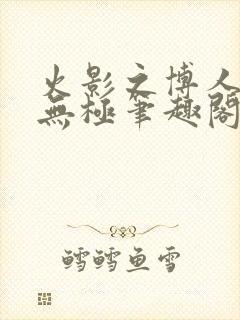 火影之博人
無極筆趣閣
鱈鱈鱼雪